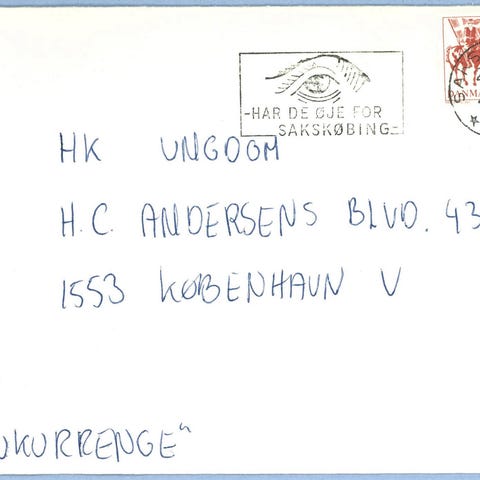 -HAR DE ØJE FOR
SAKSKØBING-
DANMA
HK UNGDOM
H.C. ANDERSENS BLVD. 43
1553 KØBENHAVN V
NKURRENGE"